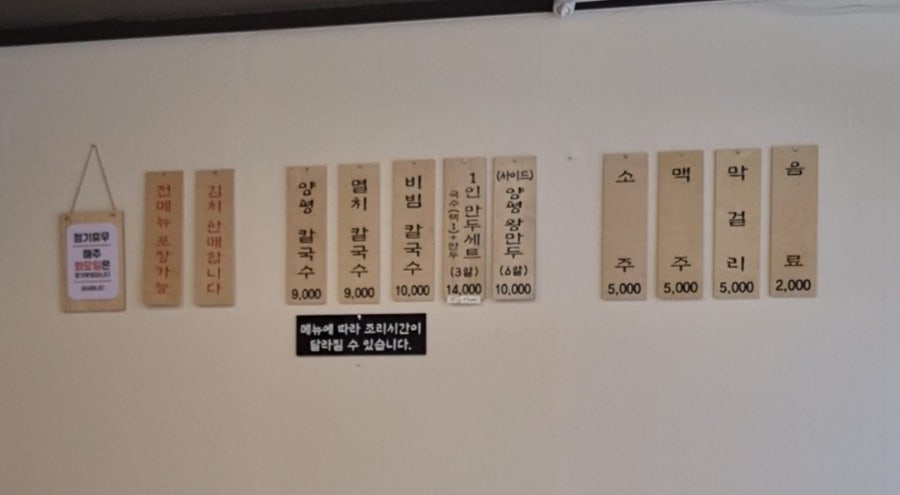 정기휴무
매주
화요일은
전메뉴 포장가능
김치 판매합니다
양평 칼국수
9,000
멸치 칼국수
9,000
비빔 칼국수
10,000
1인 만두세트
국수(택1)+만두
(3알)
14,000
(사이드)
양평 왕만두
(6알)
10,000
메뉴에 따라 조리시간이
달라질 수 있습니다.
소주
5,000
맥주
5,000
막걸리
5,000
음료
2,000